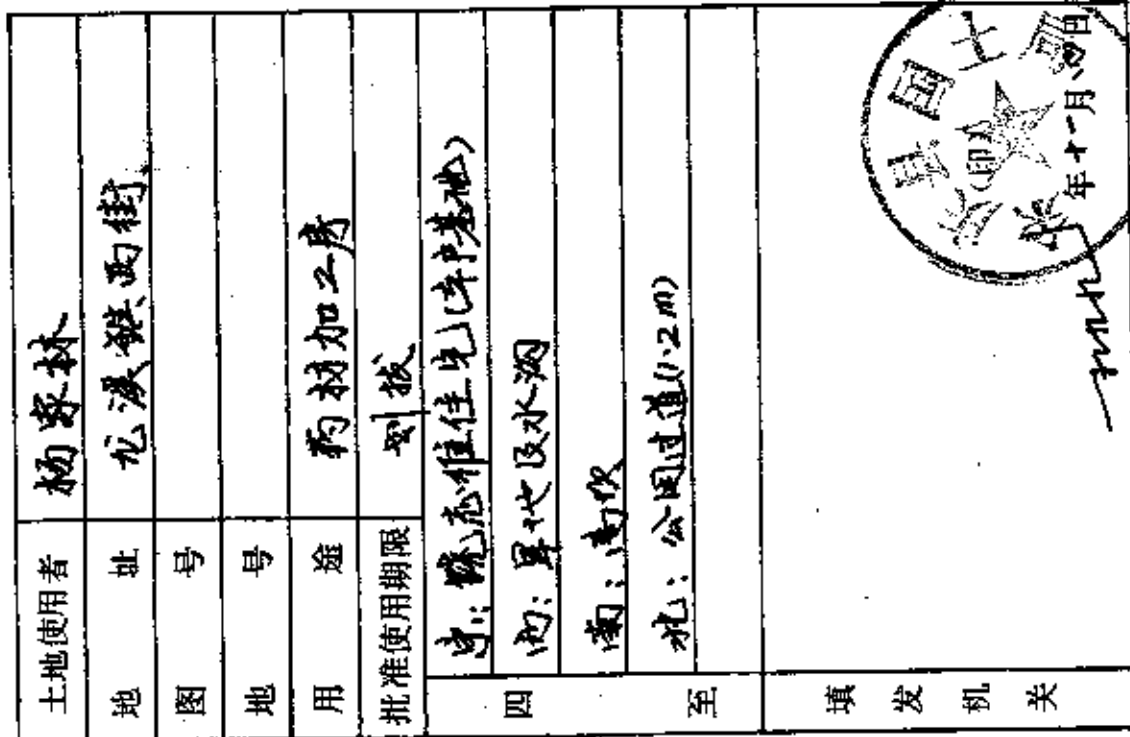 土地使用者 杨家林
地址 龙溪镇西街
图号
地号
用途 药材加工房
批准使用期限 划拨
四至
东: 住宅(本户基地)
西: 旱地及水沟
南:
北: 公用过道(1.2m)
填发机关
县国土
(印)
年十一月 日